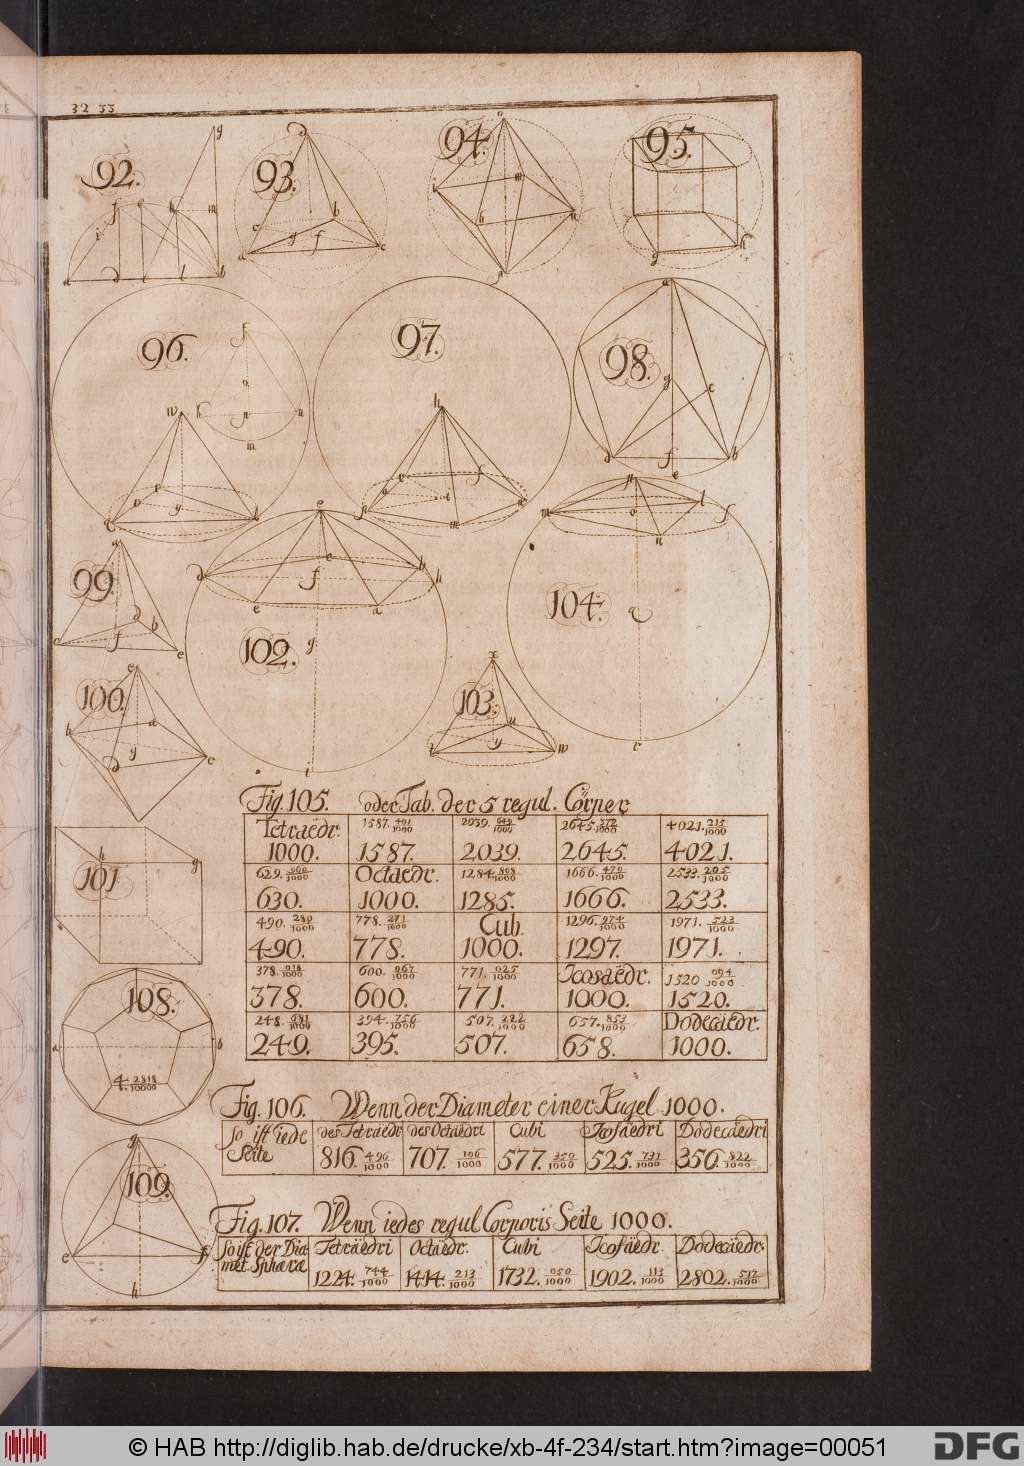 32 33
92.
93.
94.
95.
96.
97.
98.
99.
100.
102.
104.
103.
101
108.
4. 2818/10000
109.
Fig. 105. oder Tab. der 5 regul. Cörper
Tetraëdr. 1587. 401/1000 2039. 649/1000 2645. 372/1000 4021. 215/1000
1000. 1587. 2039. 2645. 4021.
629. 960/1000 Octaedr. 1284. 898/1000 1666. 479/1000 2533. 205/1000
630. 1000. 1285. 1666. 2533.
490. 280/1000 778. 271/1000 Cub. 1296. 974/1000 1971. 523/1000
490. 778. 1000. 1297. 1971.
378. 018/1000 600. 067/1000 771. 025/1000 Icosaëdr. 1520 094/1000
378. 600. 771. 1000. 1520.
248. 681/1000 394. 756/1000 507. 222/1000 657. 853/1000 Dodecaëdr.
249. 395. 507. 658. 1000.
Fig. 106. Wenn der Diameter einer Kugel 1000.
So ist iede des Tetraedr des Octaëdri Cubi Icosaëdri Dodecaëdri
Seite 816. 496/1000 707. 106/1000 577. 350/1000 525. 731/1000 356. 822/1000
Fig. 107. Wenn iedes regul Corporis Seite 1000.
So ist der Dia Tetraëdri Octaedr. Cubi Icosaedr. Dodecaëdr.
met. Sphæræ 1224. 744/1000 1414. 213/1000 1732. 050/1000 1902. 113/1000 2802. 517/1000
© HAB http://diglib.hab.de/drucke/xb-4f-234/start.htm?image=00051
DFG